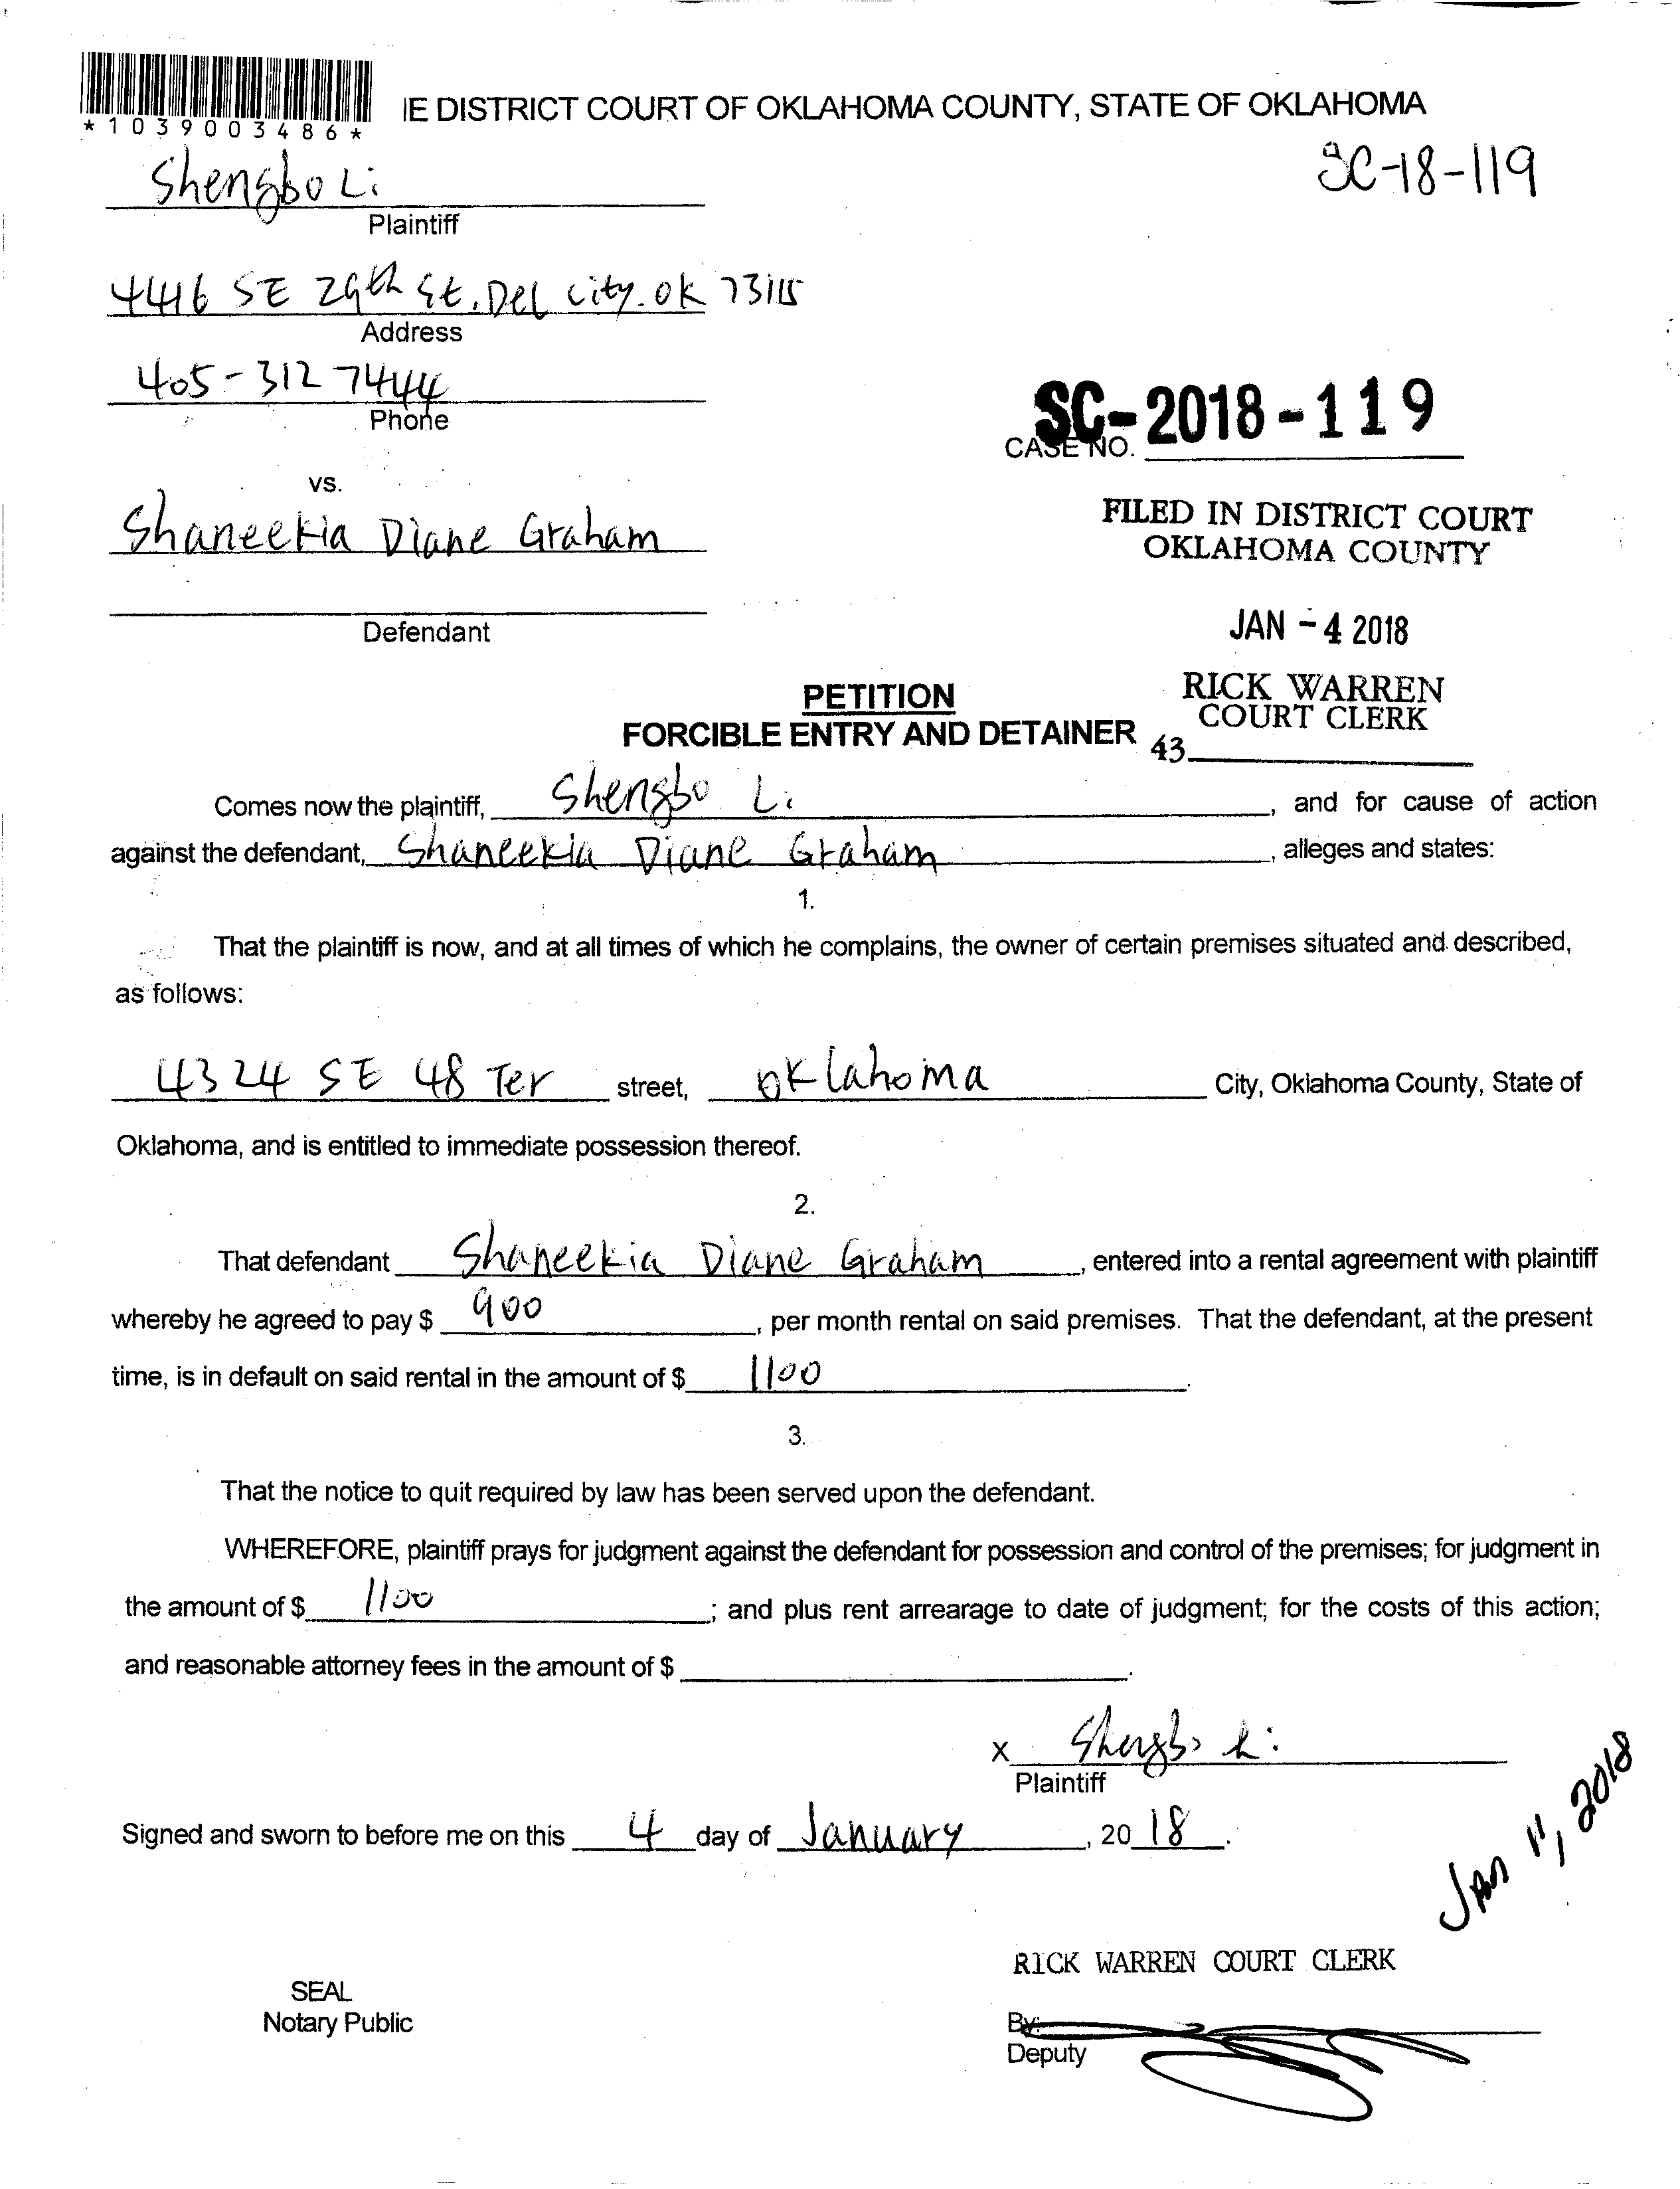 *1039003486*
IE DISTRICT COURT OF OKLAHOMA COUNTY, STATE OF OKLAHOMA
SC-18-119
Shengbo Li
Plaintiff
4416 SE 29th St. Del city. ok 73115
Address
405-312 7444
Phone
SC-2018-119
CASE NO.
vs.
Shaneekia Diane Graham
Defendant
FILED IN DISTRICT COURT
OKLAHOMA COUNTY
JAN -4 2018
RICK WARREN
COURT CLERK
43
PETITION
FORCIBLE ENTRY AND DETAINER
Comes now the plaintiff, Shengbo Li, and for cause of action
against the defendant, Shaneekia Diane Graham, alleges and states:
1.
That the plaintiff is now, and at all times of which he complains, the owner of certain premises situated and described,
as follows:
4324 SE 48 Ter street, oklahoma City, Oklahoma County, State of
Oklahoma, and is entitled to immediate possession thereof.
2.
That defendant Shaneekia Diane Graham, entered into a rental agreement with plaintiff
whereby he agreed to pay $ 900, per month rental on said premises. That the defendant, at the present
time, is in default on said rental in the amount of $ 1100.
3.
That the notice to quit required by law has been served upon the defendant.
WHEREFORE, plaintiff prays for judgment against the defendant for possession and control of the premises; for judgment in
the amount of $ 1100; and plus rent arrearage to date of judgment; for the costs of this action;
and reasonable attorney fees in the amount of $ .
X Shengbo Li
Plaintiff
Signed and sworn to before me on this 4 day of January, 20 18.
Jan 11, 2018
RICK WARREN COURT CLERK
SEAL
Notary Public
By:
Deputy